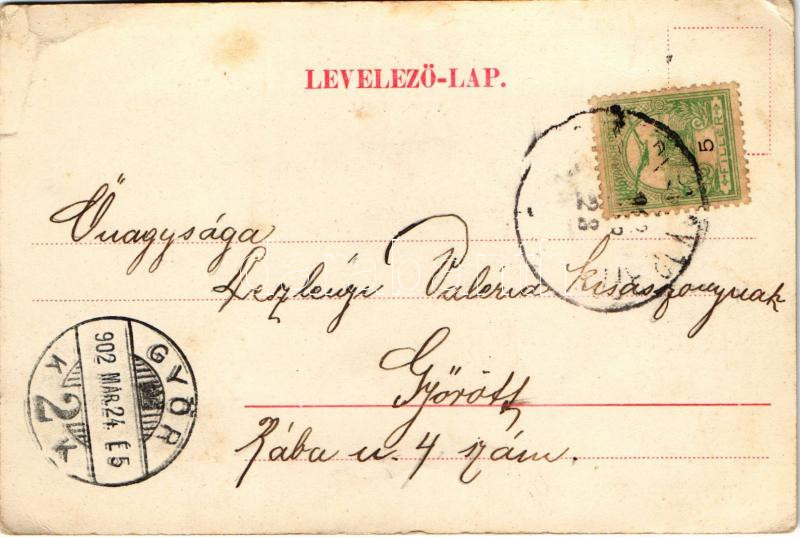 LEVELEZŐ-LAP.
5
FILLÉR
Őnagysága
Leszlényi Valéria kisasszonynak
Győrött
Rába u. 4 szám.
GYŐR
902 MÁR. 24. É5
K 2 K